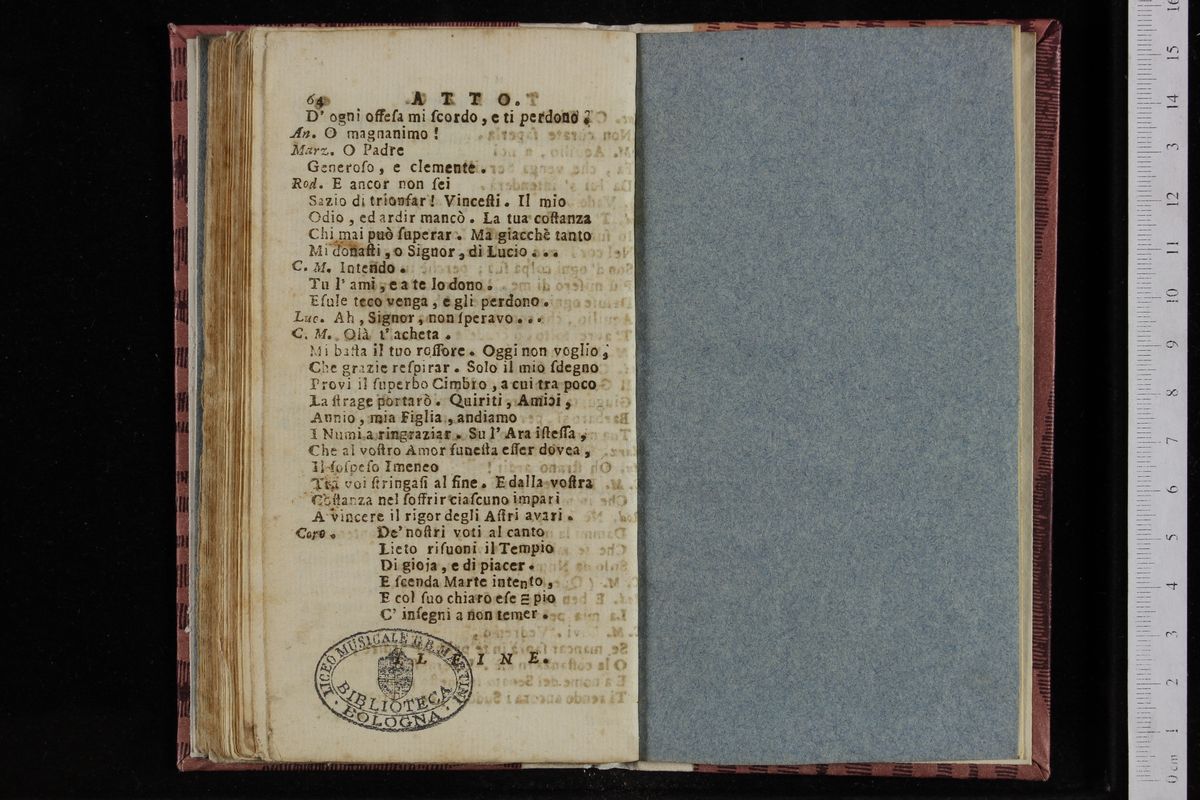 64 ATTO.
D' ogni offeſa mi ſcordo, e ti perdono.
An. O magnanimo!
Marz. O Padre
Generoſo, e clemente.
Rod. E ancor non ſei
Sazio di trionfar! Vinceſti. Il mio
Odio, ed ardir mancò. La tua coſtanza
Chi mai può ſuperar. Ma giacchè tanto
Mi donaſti, o Signor, di Lucio...
C. M. Intendo.
Tu l' ami, e a te lo dono.
Eſule teco venga, e gli perdono.
Luc. Ah, Signor, non ſperavo...
C. M. Olà t' acheta.
Mi baſta il tuo roſſore. Oggi non voglio,
Che grazie reſpirar. Solo il mio ſdegno
Provi il ſuperbo Cimbro, a cui tra poco
La ſtrage portarò. Quiriti, Amici,
Annio, mia Figlia, andiamo
I Numi a ringraziar. Su l' Ara iſteſſa,
Che al voſtro Amor funeſta eſſer dovea,
Il ſoſpeſo Imeneo
Tra voi ſtringaſi al fine. E dalla voſtra
Coſtanza nel ſoffrir ciaſcuno impari
A vincere il rigor degli Aſtri avari.
Coro. De' noſtri voti al canto
Lieto riſuoni il Tempio
Di gioja, e di piacer.
E ſcenda Marte intento,
E col ſuo chiaro eſempio
C' inſegni a non temer.
IL FINE.
LICEO MUSICALE G. B. MARTINI
BIBLIOTECA
BOLOGNA
0 cm 1 2 3 4 5 6 7 8 9 10 11 12 3 14 15 16